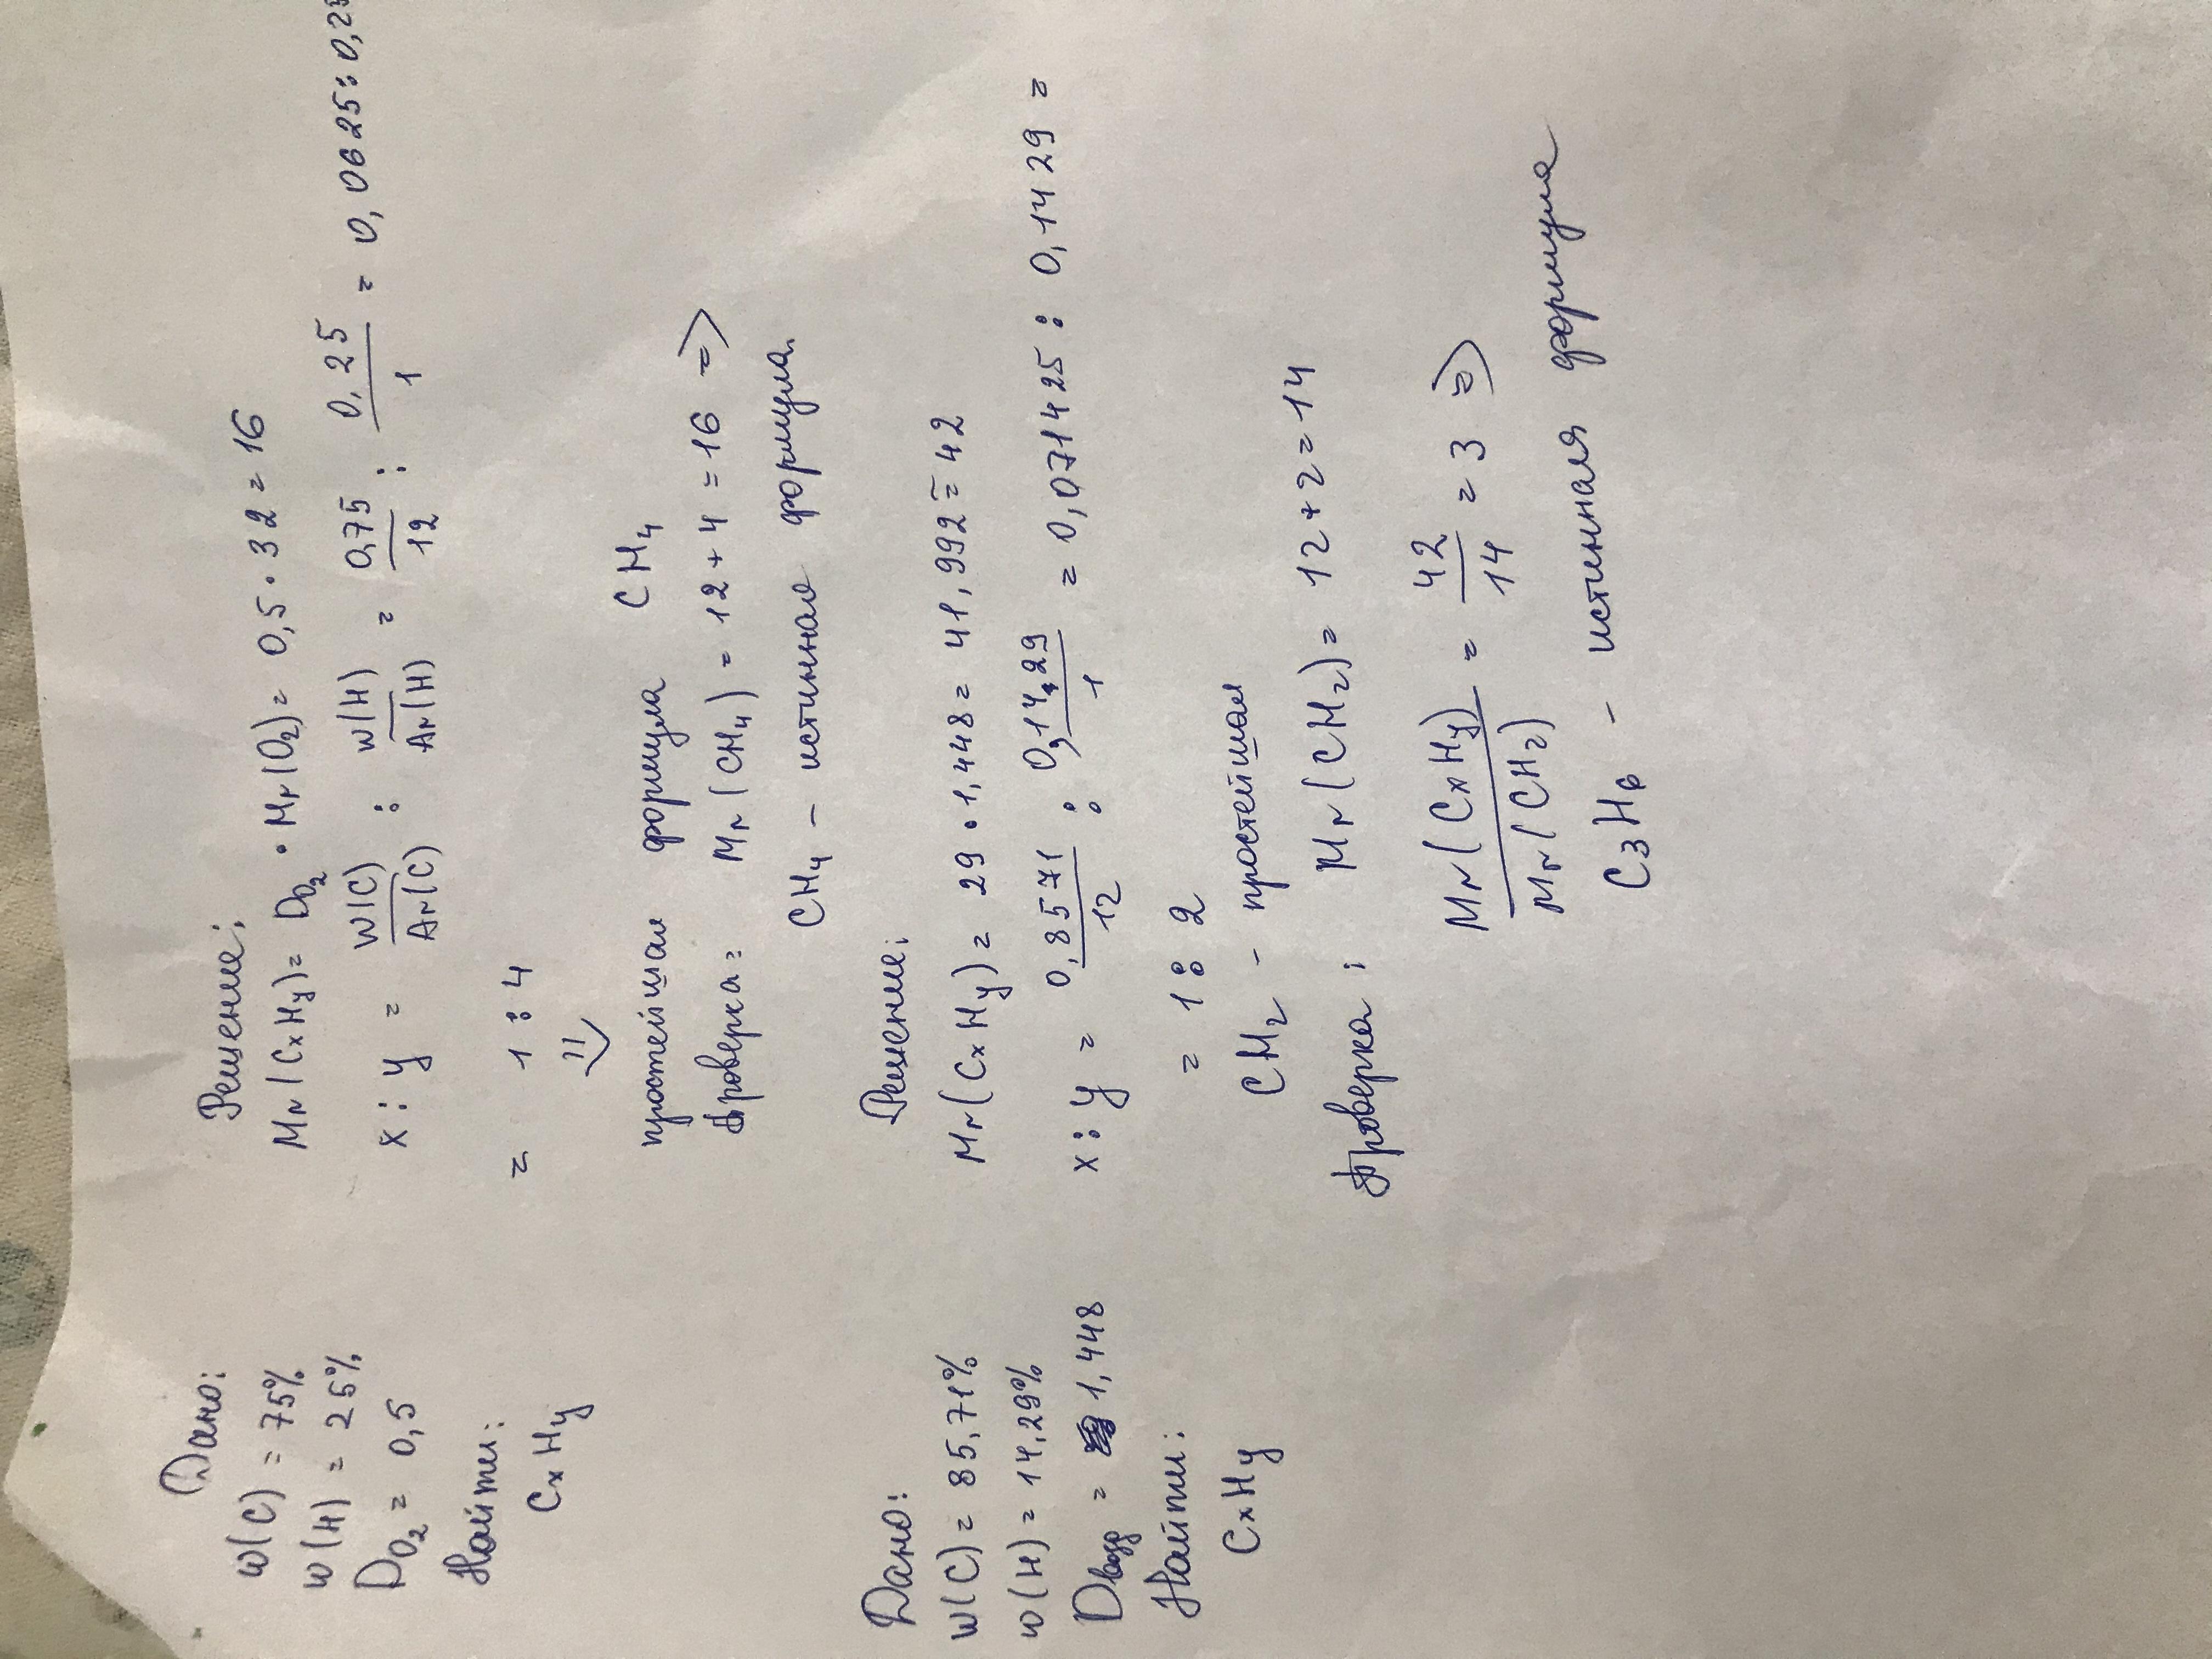 Дано:
w(C) = 75%
w(H) = 25%
D O₂ = 0,5
Найти:
CxHy
Решение:
Mr(CxHy) = D O₂ · Mr(O₂) = 0,5 · 32 = 16
x : y = w(C)/Ar(C) : w(H)/Ar(H) = 0,75/12 : 0,25/1 = 0,0625 : 0,25
= 1 : 4
простейшая формула CH₄
Проверка: Mr(CH₄) = 12 + 4 = 16 =>
CH₄ – истинная формула.
Дано:
w(C) = 85,71%
w(H) = 14,29%
Dвозд = 1,448
Найти:
CxHy
Решение:
Mr(CxHy) = 29 · 1,448 = 41,992 = 42
x : y = 0,8571/12 : 0,1429/1 = 0,071425 : 0,1429 =
= 1 : 2
CH₂ – простейшая
Проверка: Mr(CH₂) = 12 + 2 = 14
Mr(CxHy)/Mr(CH₂) = 42/14 = 3 =>
C₃H₆ – истинная формула